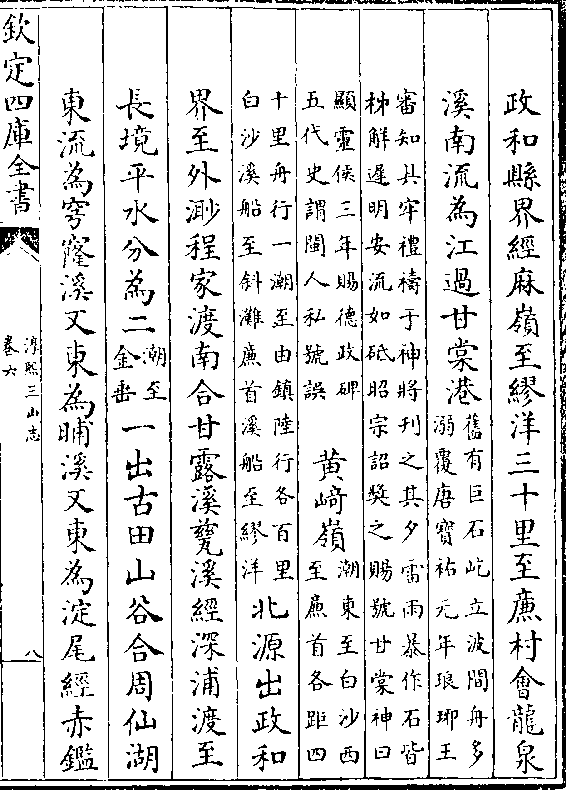 政和縣界經麻嶺至繆洋三十里至廉村會龍泉
溪南流為江過甘棠港舊有巨石屹立波間舟多
溺覆唐寶祐元年琅琊王
審知具牢禮禱于神將刋之其夕雷雨暴作石皆
柹解遲明安流如砥昭宗詔獎之賜號甘棠神曰
顯靈侯三年賜德政碑
五代史謂閩人私號誤
黄﨑嶺潮東至白沙西
至廉首各距四
十里舟行一潮至由鎮陸行各百里
白沙溪船至斜灘廉首溪船至繆洋
北源出政和
界至外渺程家渡南合甘露溪甕溪經深浦渡至
長境平水分為二潮至
金垂
一出古田山谷合周仙湖
東流為穹窿溪又東為晡溪又東為淀尾經赤鑑
欽定四庫全書
淳熙三山志
卷六
八